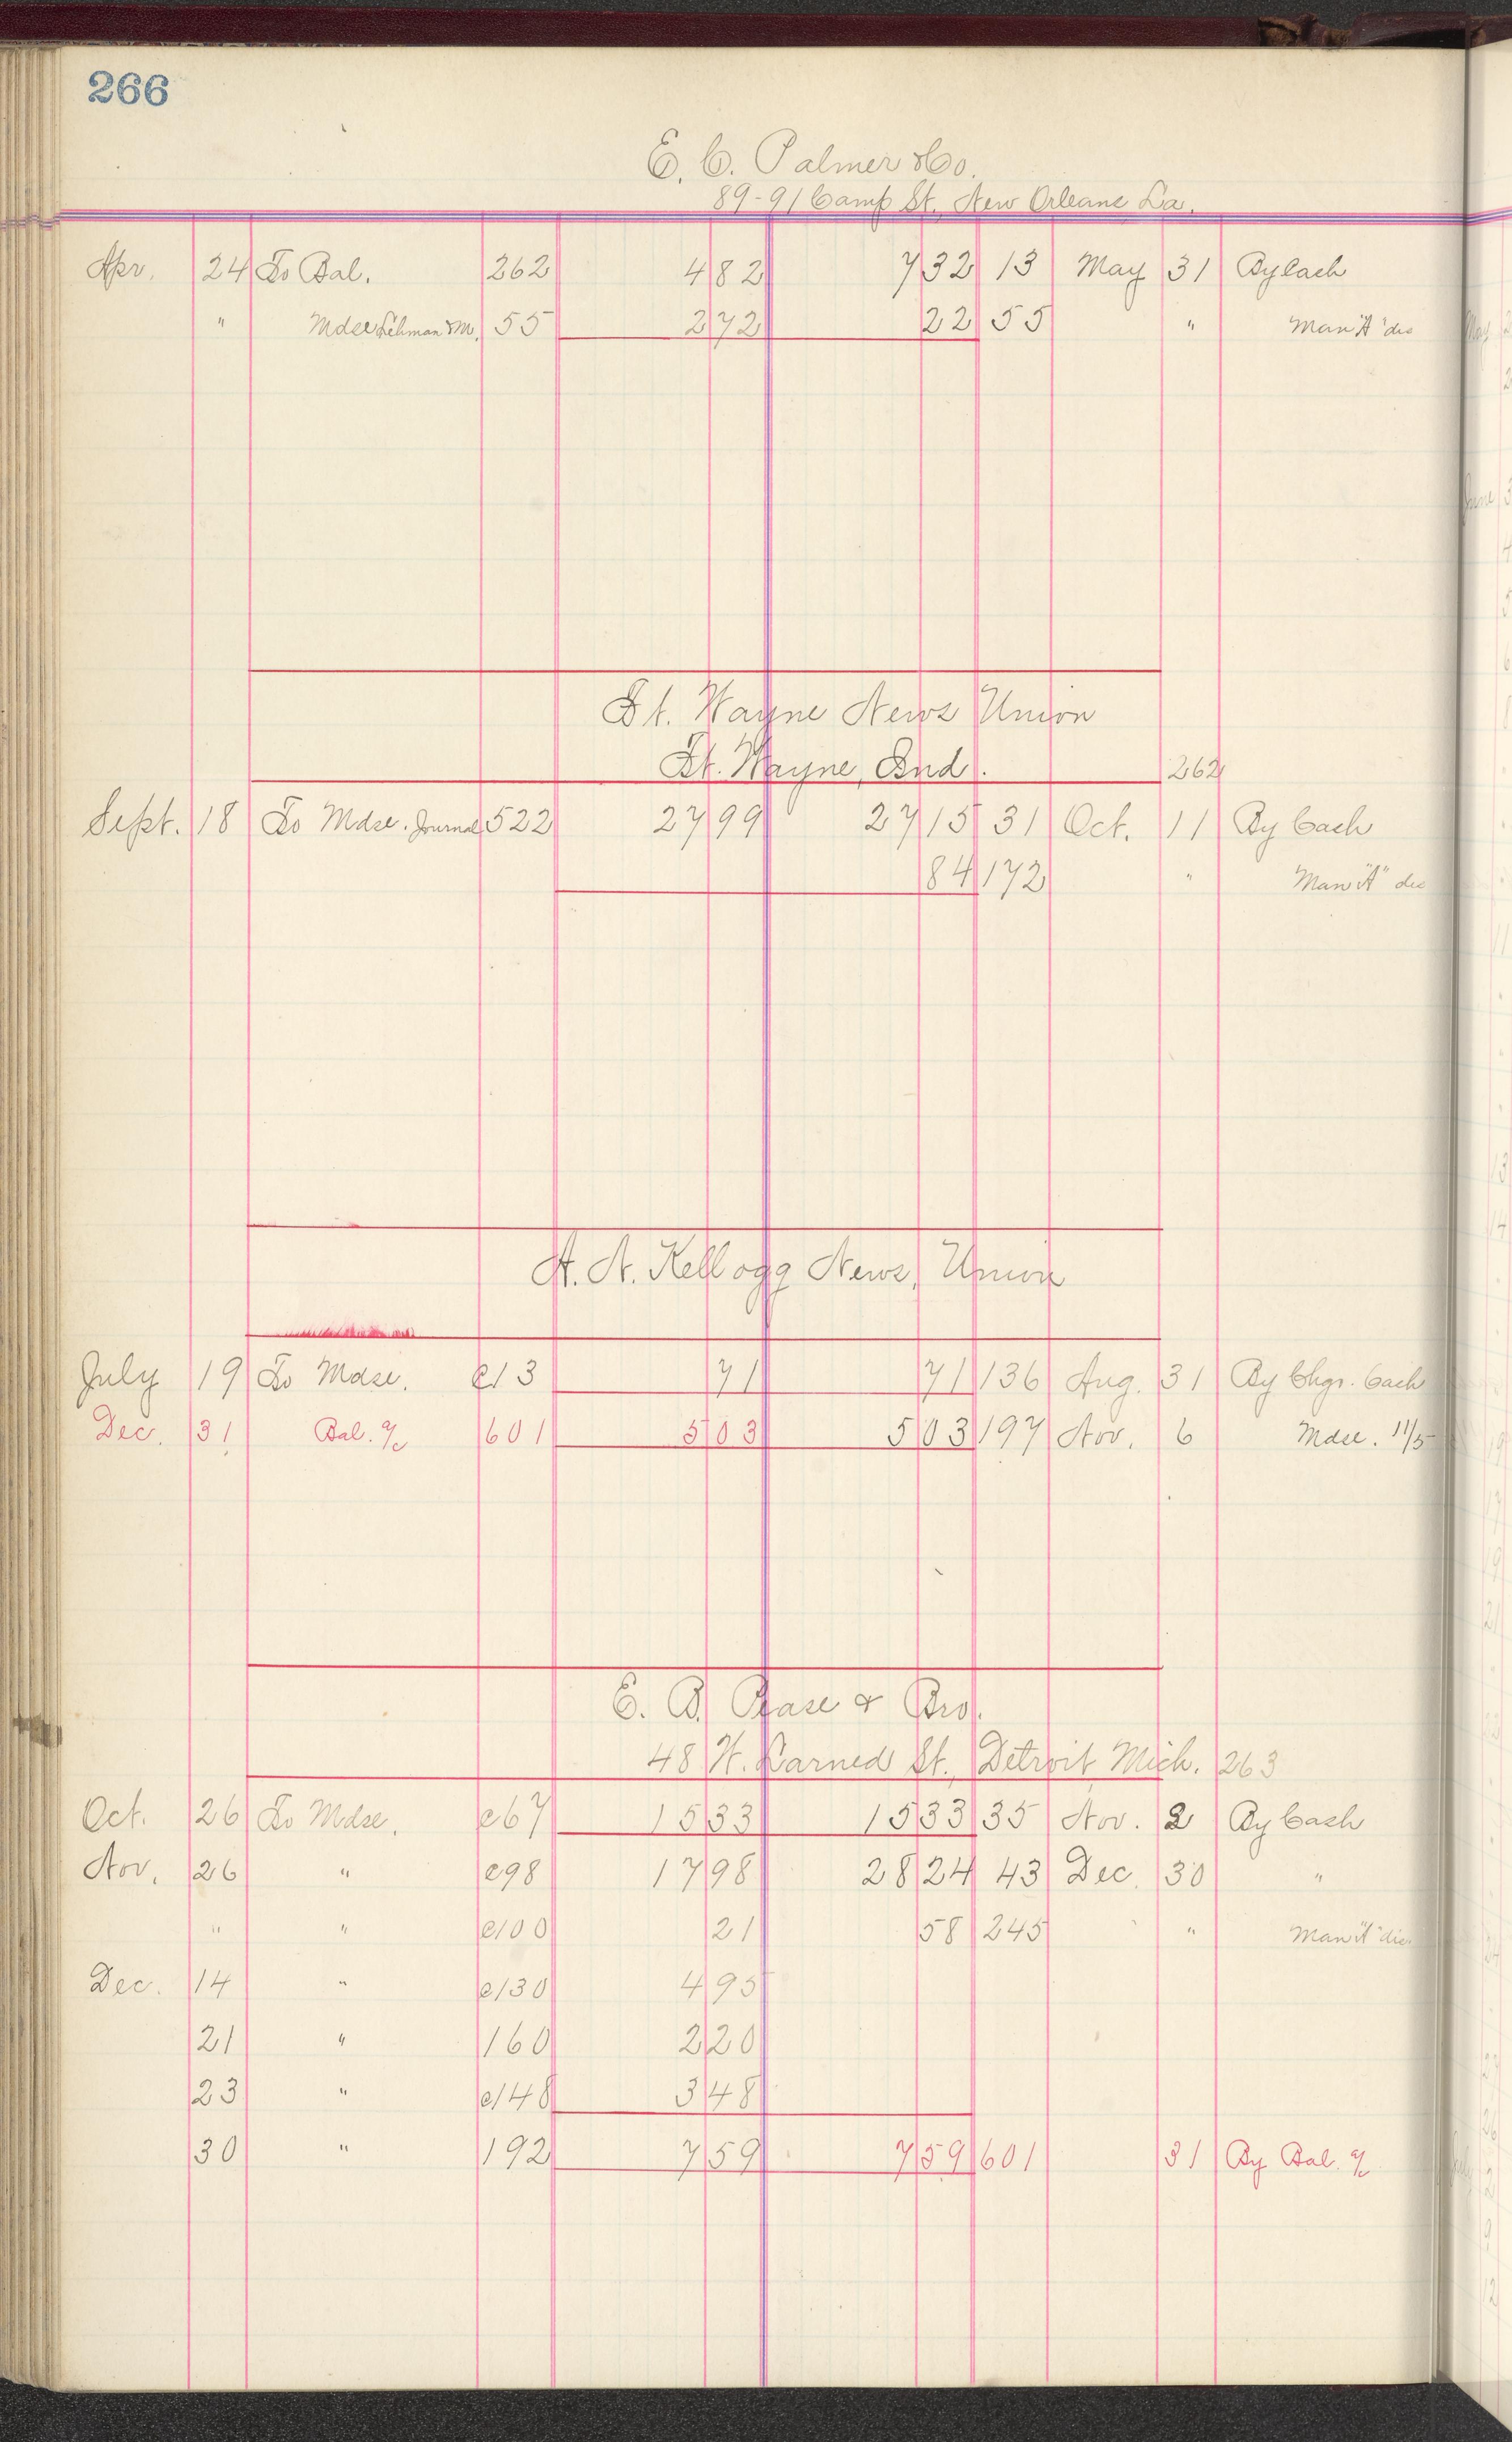 266
E. C. Palmer & Co.
89-91 Camp St. New Orleans La.
Apr. 24 To Bal. 262 4 82 7 32 13 May 31 By Cash
" Mdse Lehman & M. 55 2 72 22 55 " Man "A" dis
Ft. Wayne News Union
Ft. Wayne, Ind. 262
Sept. 18 To Mdse. Journal 522 27 99 27 15 31 Oct. 11 By Cash
84 172 " Man "A" dis
A. N. Kellogg News, Union
July 19 To Mdse. C13 71 71 136 Aug. 31 By Chgs. Cash
Dec. 31 Bal. a/c 601 5 03 5 03 197 Nov. 6 Mdse. 11/5
E. B. Pease & Bro.
48 W. Larned St. Detroit Mich. 263
Oct. 26 To Mdse. C67 15 33 15 33 35 Nov. 2 By Cash
Nov. 26 " C98 17 98 28 24 43 Dec. 30 "
" " C100 21 58 245 " " Man "A" dis
Dec. 14 " C130 4 95
21 " 160 2 20
23 " C148 3 48
30 " 192 7 59 7 59 601 31 By Bal. a/c